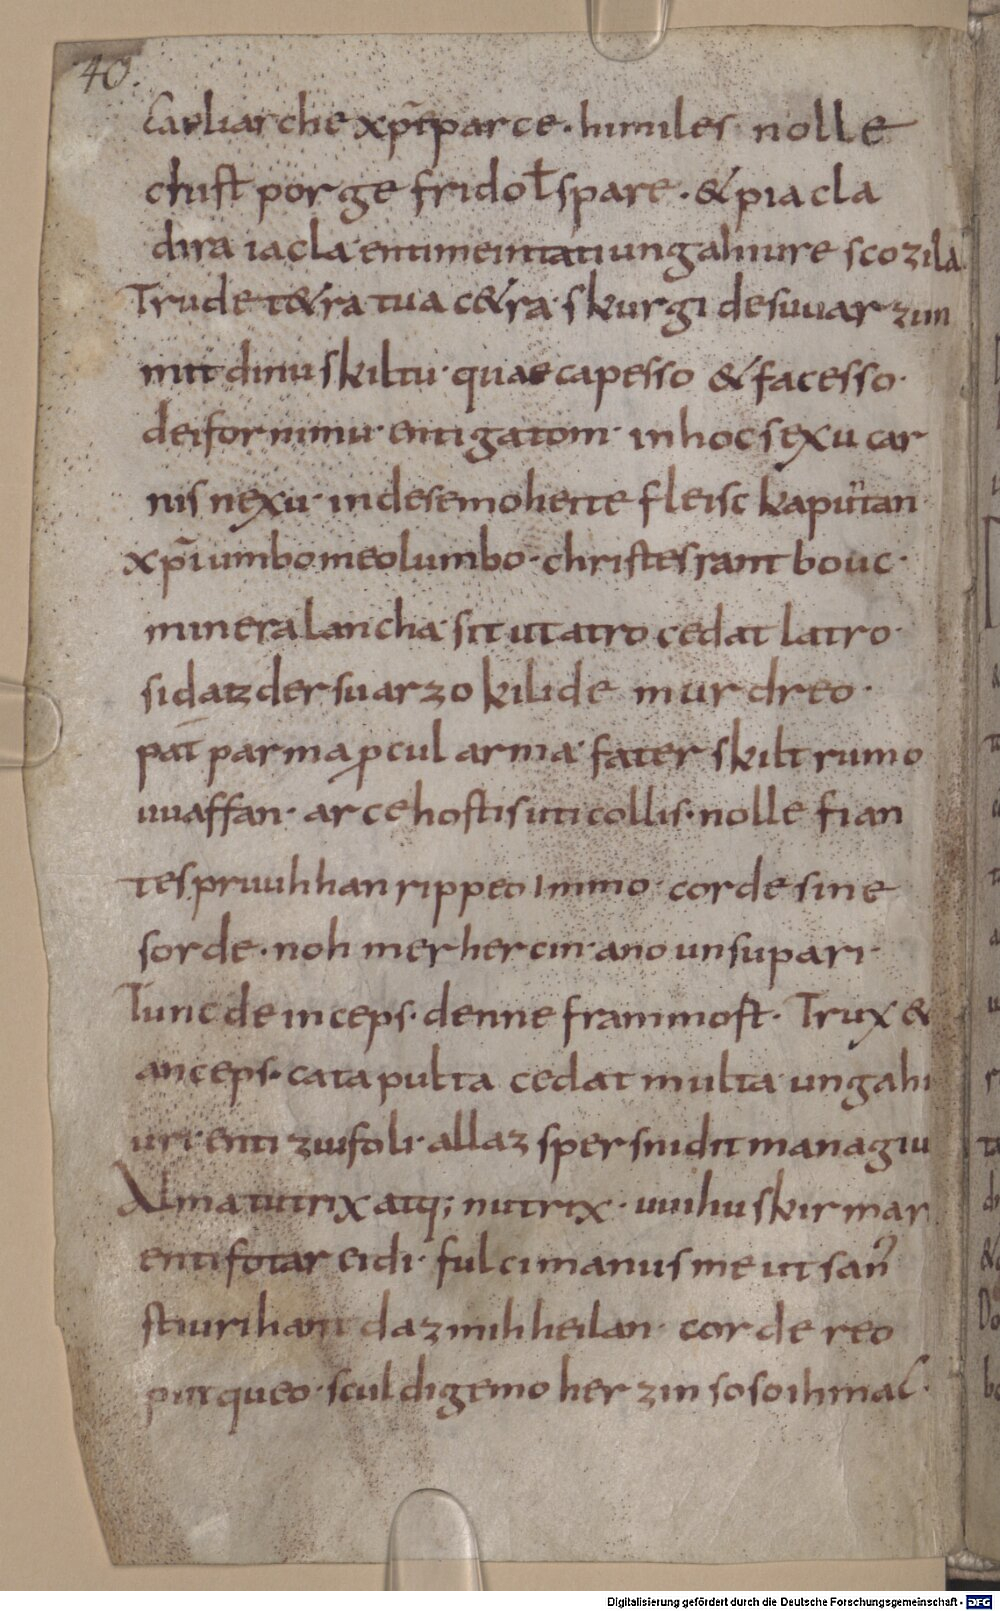 40.
Caeliarche xp̄e parce · himiles nolle
christ porge frido ł spare · & pia cla
dira iacla entimeintatiungahiure scozila
Trude t&ra tua c&ra · skurgi desuuarzun
mit dinu skiltu · quae capesso & facesso ·
dei fornimu · enti gatom · in hoc sexu car
nis nexu · in desemo heite fleisc kapuntan
xp̄i umbo meo lumbo · christes rant bouc ·
minera lancha · sit ut atro cedat latro ·
sidaz der suarzo kilide murdreo ·
pat̄ parma ꝓcul arma · fater skilt rumo
uuaffan · arce hostis uti collis · nolle fian
tes pruuhhan rippeo Immo corde sine
sorde · noh mer hercin · ano unsupari ·
Tunc deinceps · denne frammost · Trux &
anceps · catapulta cedat multa ungahi
uri · enti zuifoli · allaz sper snidit managiu
Alma tutrix atq; nutrix · uuihu skirmar
enti fotar eidi · fulci manus me ut san
stiuri hant daz mih heilan · corde reo
pur queo · sculdigemo herzin so so ih mac ·
Digitalisierung gefördert durch die Deutsche Forschungsgemeinschaft - DFG